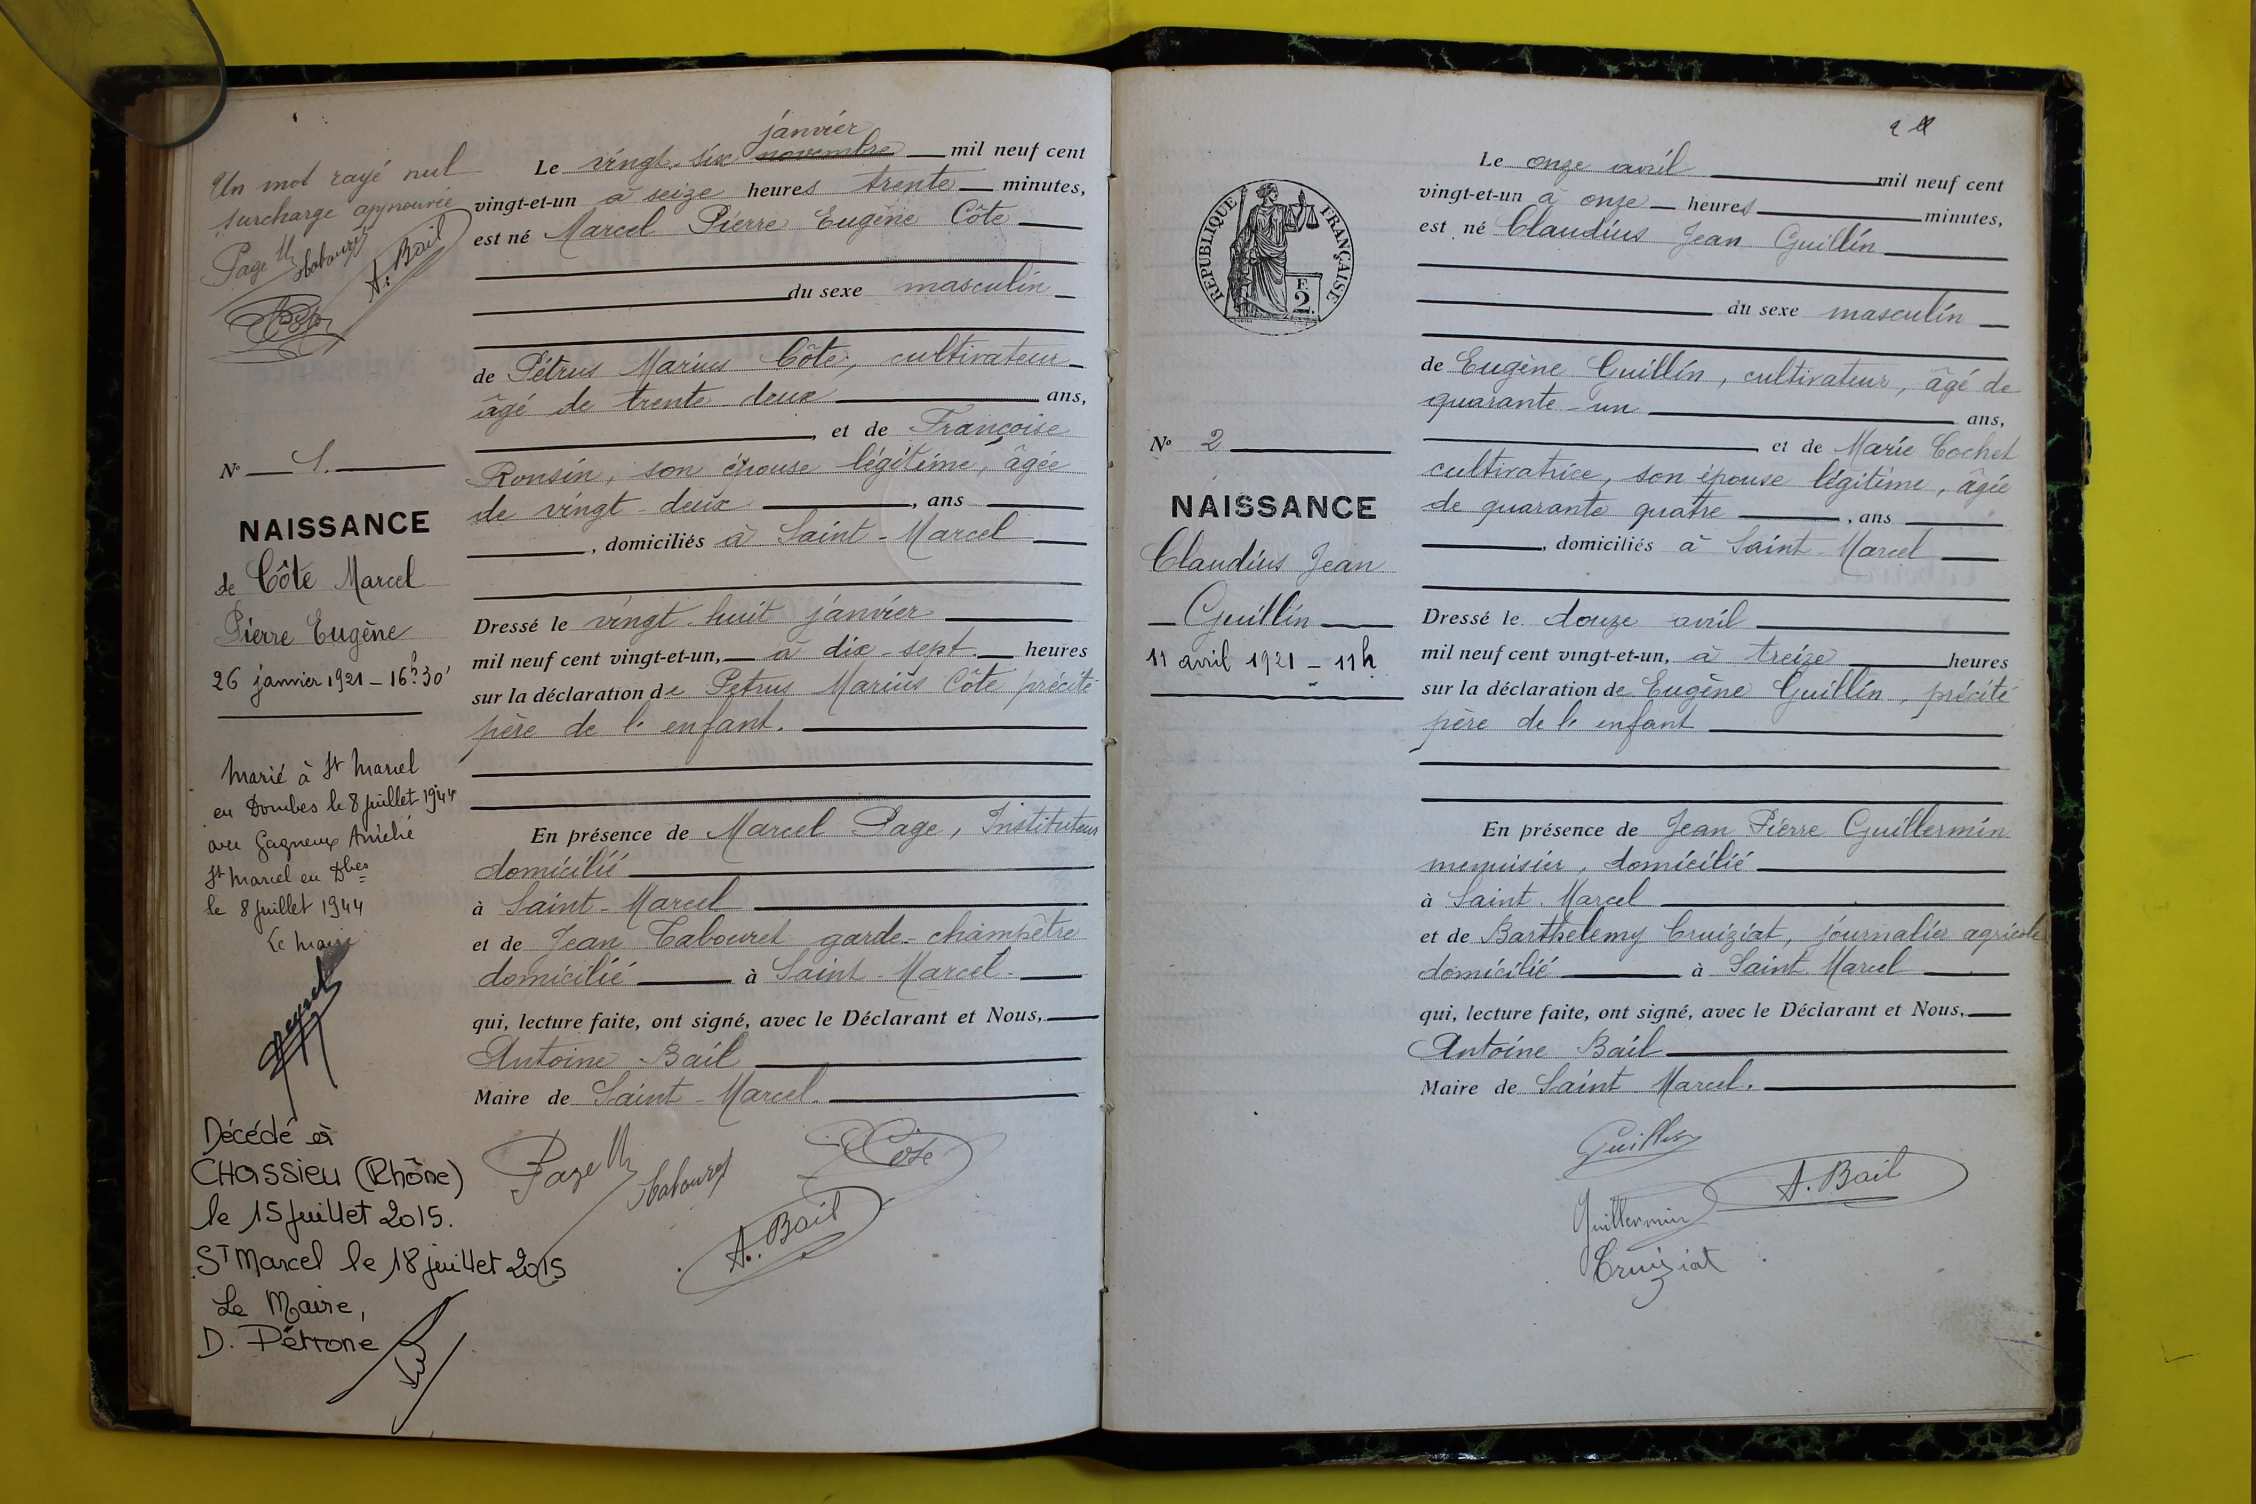 Un mot rayé nul
surcharge approuvée
Page M
Tabouret
A. Bail
Côte
N° 1.
NAISSANCE
de Côte Marcel
Pierre Eugène
26 janvier 1921 - 16h 30'
Marié à St Marcel
en Dombes le 8 juillet 1944
avec Gagneux Amélie
St Marcel en Dbes
le 8 juillet 1944
Le Maire
Décédé à
CHASSIEU (Rhône)
le 15 juillet 2015.
ST Marcel le 18 juillet 2015
Le Maire,
D. Pétrone
janvier
Le vingt-six novembre mil neuf cent
vingt-et-un à seize heures trente minutes,
est né Marcel Pierre Eugène Côte
du sexe masculin
de Pétrus Marius Côte, cultivateur
âgé de trente-deux ans,
, et de Françoise
Ronsin, son épouse légitime, âgée
de vingt-deux , ans
, domiciliés à Saint-Marcel
Dressé le vingt-huit janvier
mil neuf cent vingt-et-un, à dix-sept heures
sur la déclaration de Pétrus Marius Côte précité
père de l'enfant.
En présence de Marcel Page, Instituteur
domicilié
à Saint-Marcel
et de Jean Tabouret garde-champêtre
domicilié à Saint-Marcel.
qui, lecture faite, ont signé, avec le Déclarant et Nous,
Antoine Bail
Maire de Saint-Marcel.
Page M
Tabouret
Côte
A. Bail
2
RÉPUBLIQUE FRANÇAISE
F.
2.
N° 2
NAISSANCE
Claudius Jean
Guillin
11 avril 1921 - 11h
Le onze avril mil neuf cent
vingt-et-un à onze heures minutes,
est né Claudius Jean Guillin
du sexe masculin
de Eugène Guillin, cultivateur, âgé de
quarante-un ans,
et de Marie Cochet
cultivatrice, son épouse légitime, âgée
de quarante quatre , ans
, domiciliés à Saint-Marcel
Dressé le douze avril
mil neuf cent vingt-et-un, à treize heures
sur la déclaration de Eugène Guillin, précité
père de l'enfant
En présence de Jean Pierre Guillermin
menuisier, domicilié
à Saint-Marcel
et de Barthelemy Cruiziat, journalier agricole
domicilié à Saint Marcel
qui, lecture faite, ont signé, avec le Déclarant et Nous,
Antoine Bail
Maire de Saint Marcel.
Guillin
A. Bail
Guillermin
Cruiziat